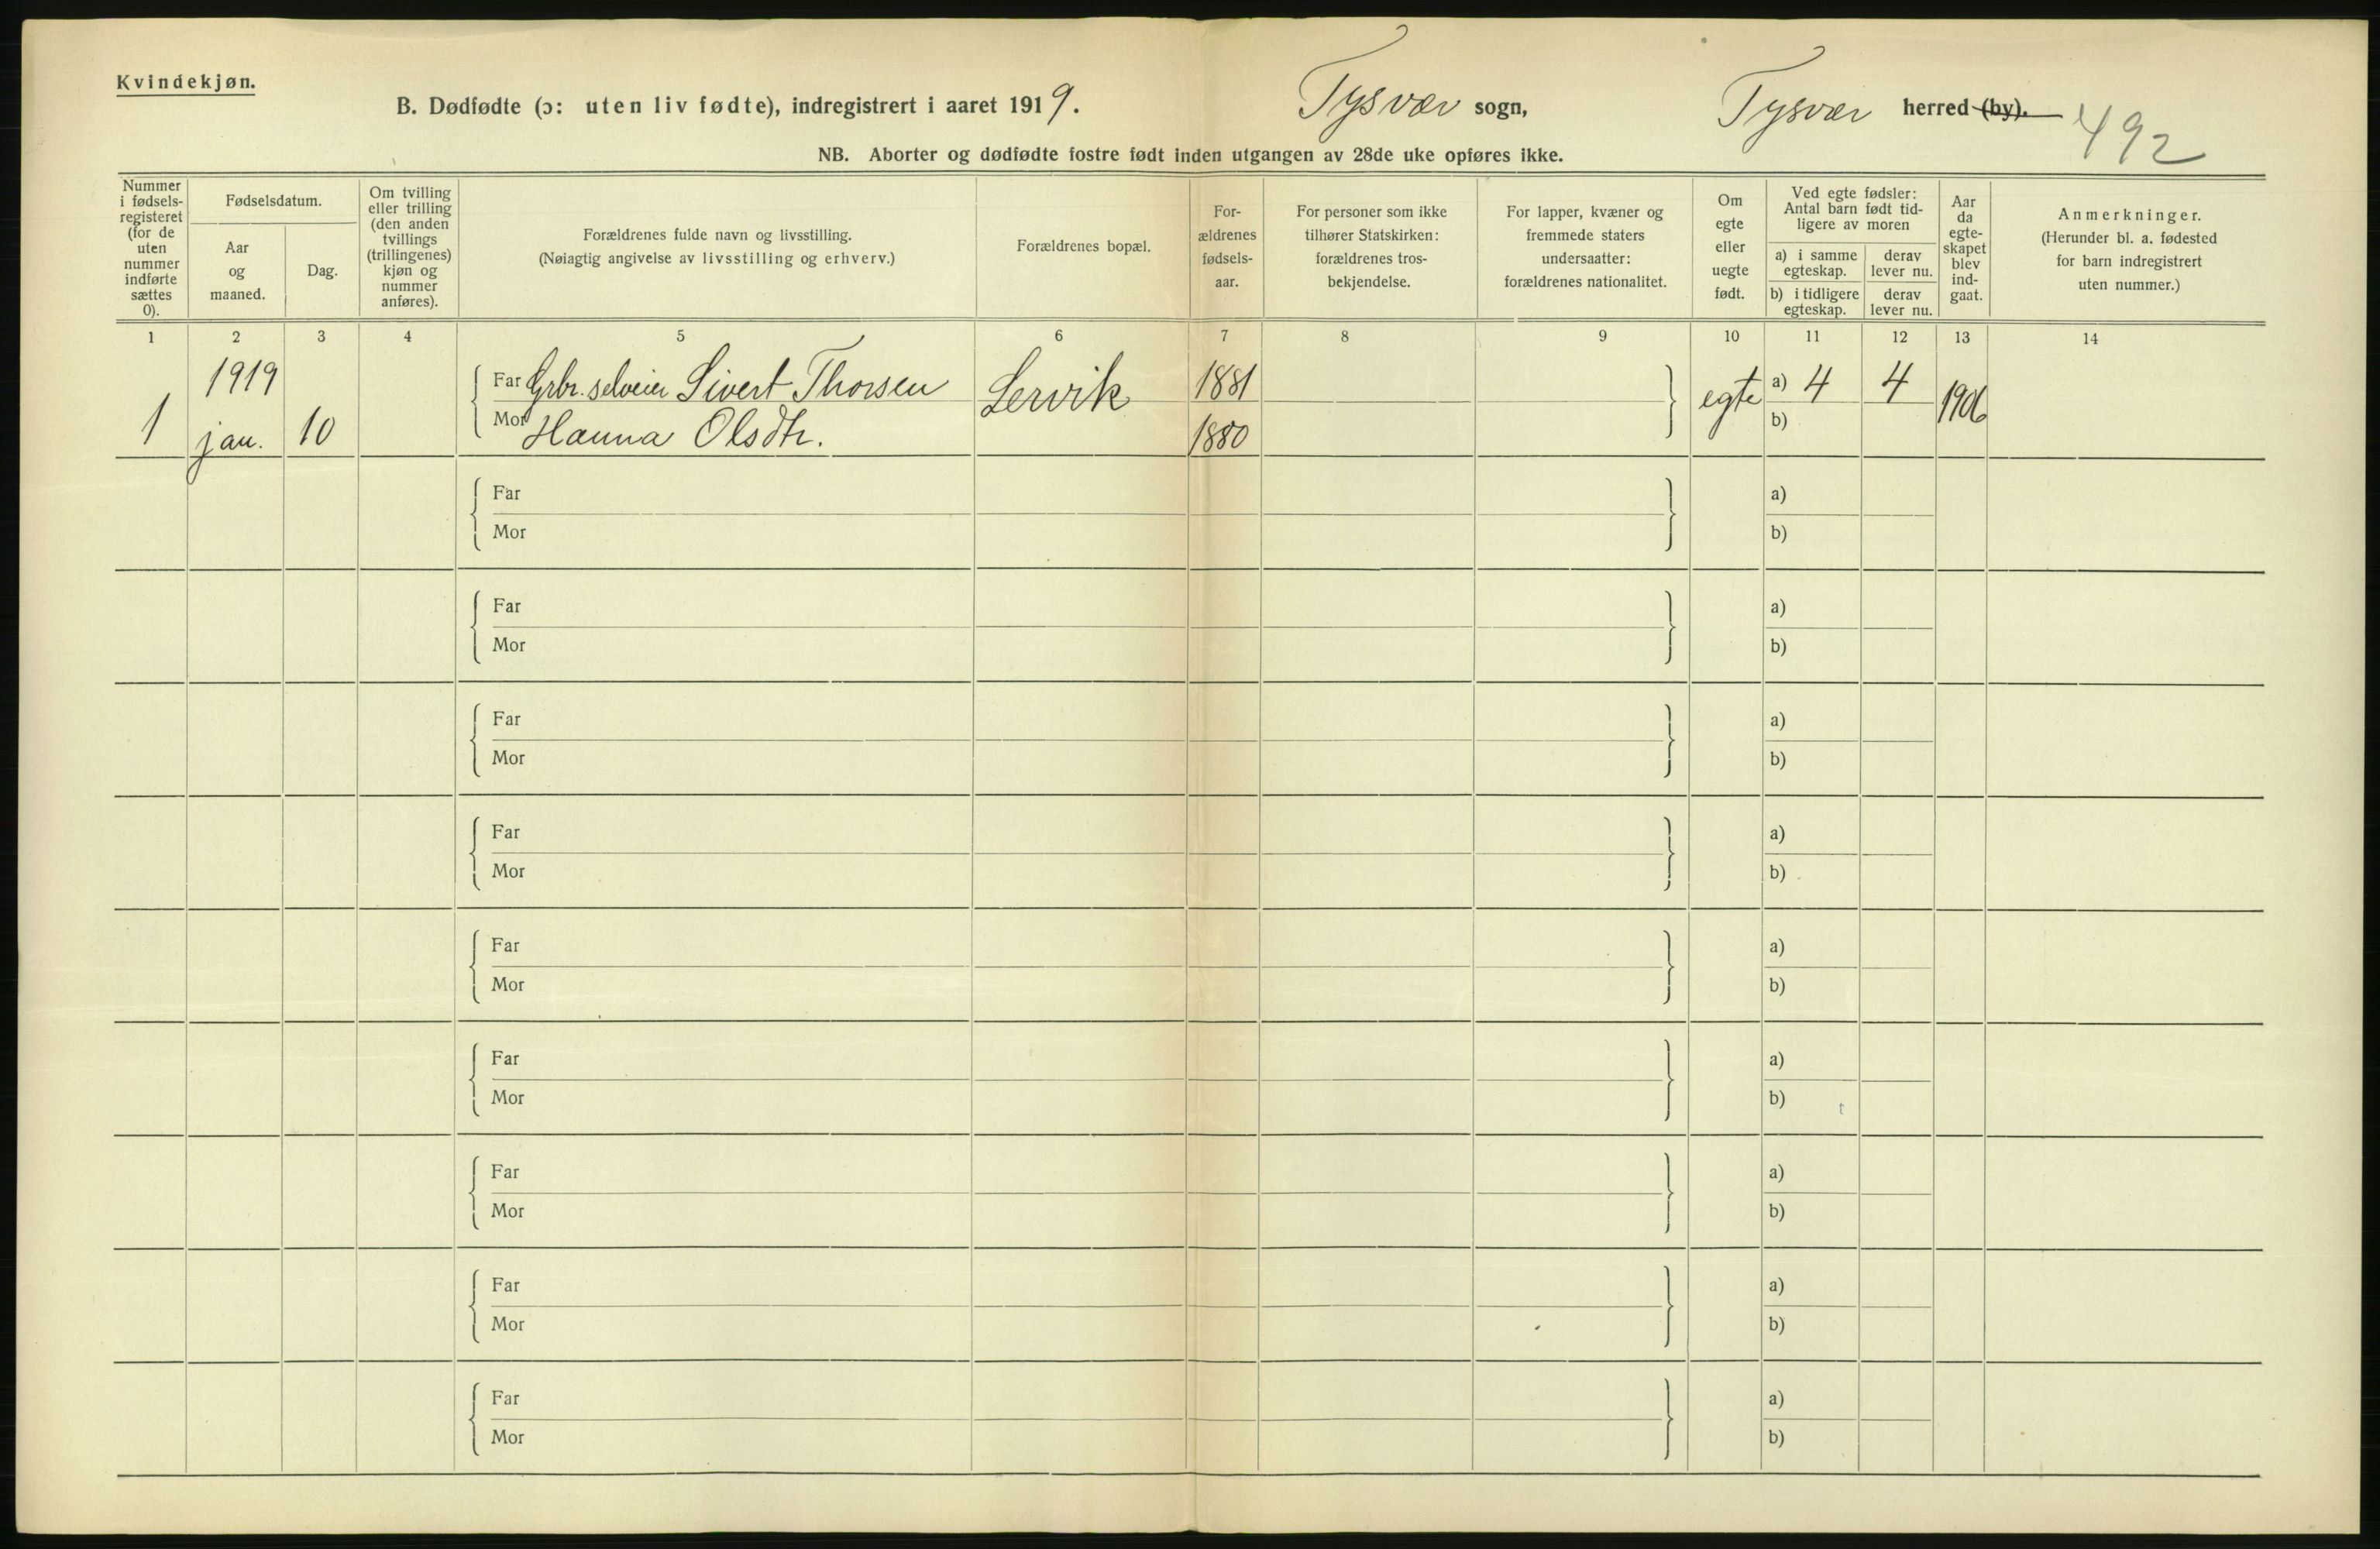 Kvindekjøn.
B. Dødfødte (ɔ: uten liv fødte), indregistrert i aaret 1919. Tysvær sogn, Tysvær herred (by). 492
NB. Aborter og dødfødte fostre født inden utgangen av 28de uke opføres ikke.
Nummer
i fødsels-
registeret
(for de
uten
nummer
indførte
sættes
0).
Fødselsdatum.
Aar
og
maaned.
Dag.
Om tvilling
eller trilling
(den anden
tvillings
(trillingenes)
kjøn og
nummer
anføres).
Forældrenes fulde navn og livsstilling.
(Nøiagtig angivelse av livsstilling og erhverv.)
Forældrenes bopæl.
For-
ældrenes
fødsels-
aar.
For personer som ikke
tilhører Statskirken:
forældrenes tros-
bekjendelse.
For lapper, kvæner og
fremmede staters
undersaatter:
forældrenes nationalitet.
Om
egte
eller
uegte
født.
Ved egte fødsler:
Antal barn født tid-
ligere av moren
a) i samme
egteskap.
derav
lever nu.
b) i tidligere
egteskap.
derav
lever nu.
Aar
da
egte-
skapet
blev
ind-
gaat.
Anmerkninger.
(Herunder bl. a. fødested
for barn indregistrert
uten nummer.)
1 2 3 4 5 6 7 8 9 10 11 12 13 14
1919 Far Grbr. selveier Sivert Thorsen Lervik 1881 egte a) 4 4 1906
1 jan. 10 Mor Hanna Olsdtr. 1880 b)
Far a)
Mor b)
Far a)
Mor b)
Far a)
Mor b)
Far a)
Mor b)
Far a)
Mor b)
Far a)
Mor b)
Far a)
Mor b)
Far a)
Mor b)
Far a)
Mor b)